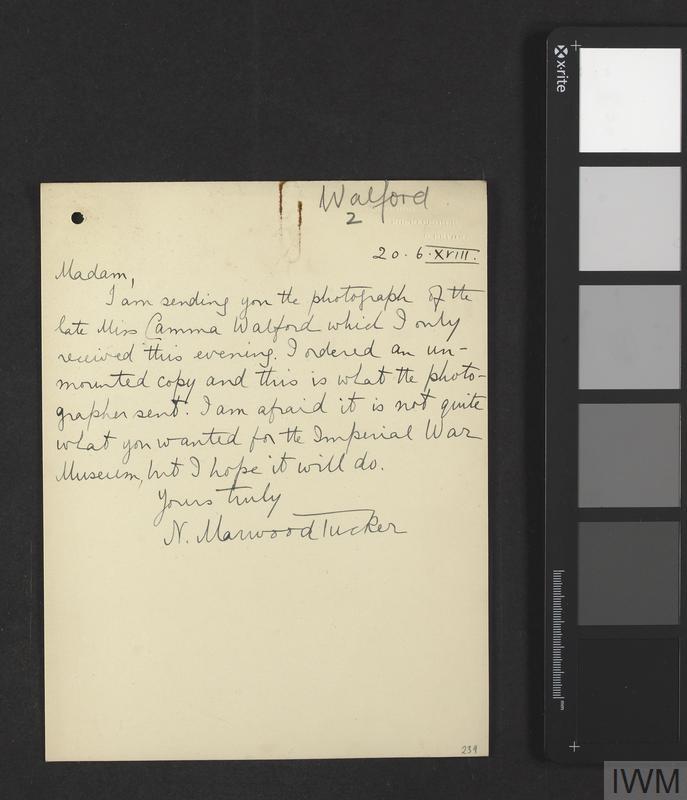 Walford
2
20.6.XVIII.
Madam,
I am sending you the photograph of the
late Miss Camma Walford which I only
received this evening. I ordered an un-
mounted copy and this is what the photo-
grapher sent. I am afraid it is not quite
what you wanted for the Imperial War
Museum, but I hope it will do.
Yours truly
N. Marwood Tucker
239
x·rite
mm
IWM